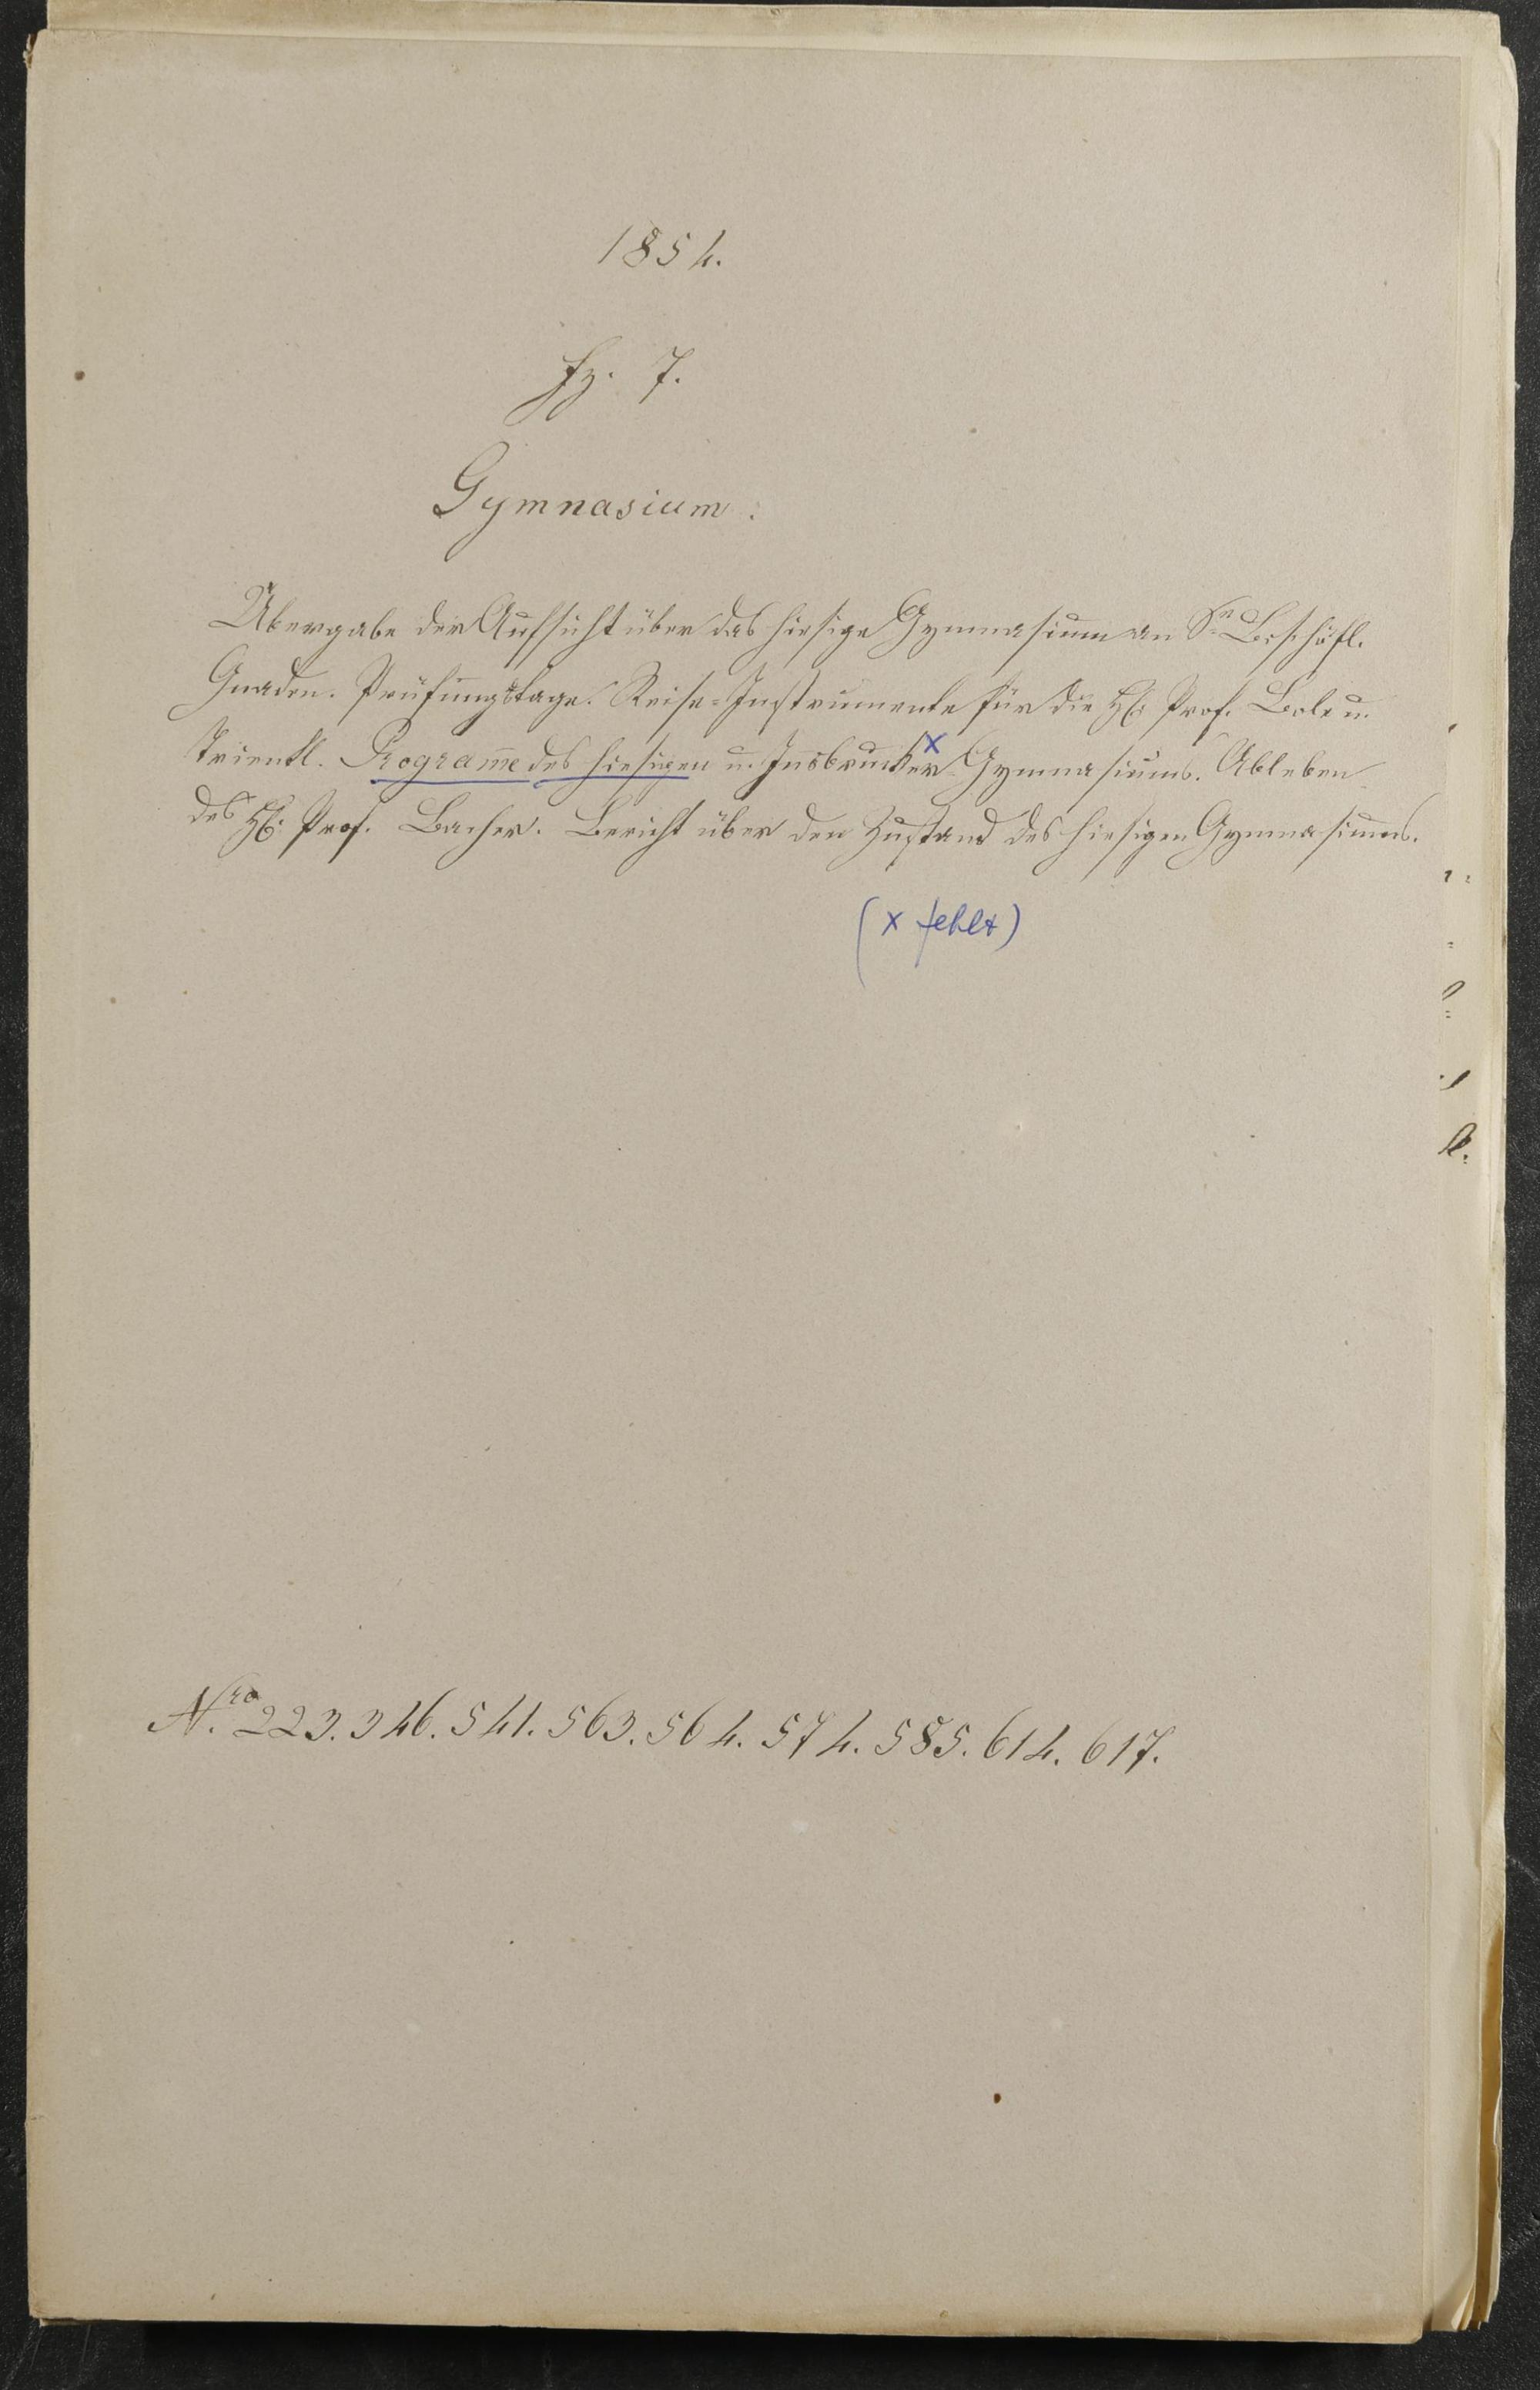 1854.
fz. 7.
Gymnasium.
Übergabe der Aufsicht über das hiesige Gymnasium an Sr. Bischöfl.
Gnaden. Prüfungstage. Reise-Instrumente für die HH. Prof. Bole u.
Trientl. Programme des hiesigen u. Insbrucker x Gymnasiums. Ableben
des H. Prof. Bacher. Bericht über den Zustand des hiesigen Gymnasiums.
(x fehlt)
Nro 223. 346. 541. 563. 564. 574. 585. 614. 617.